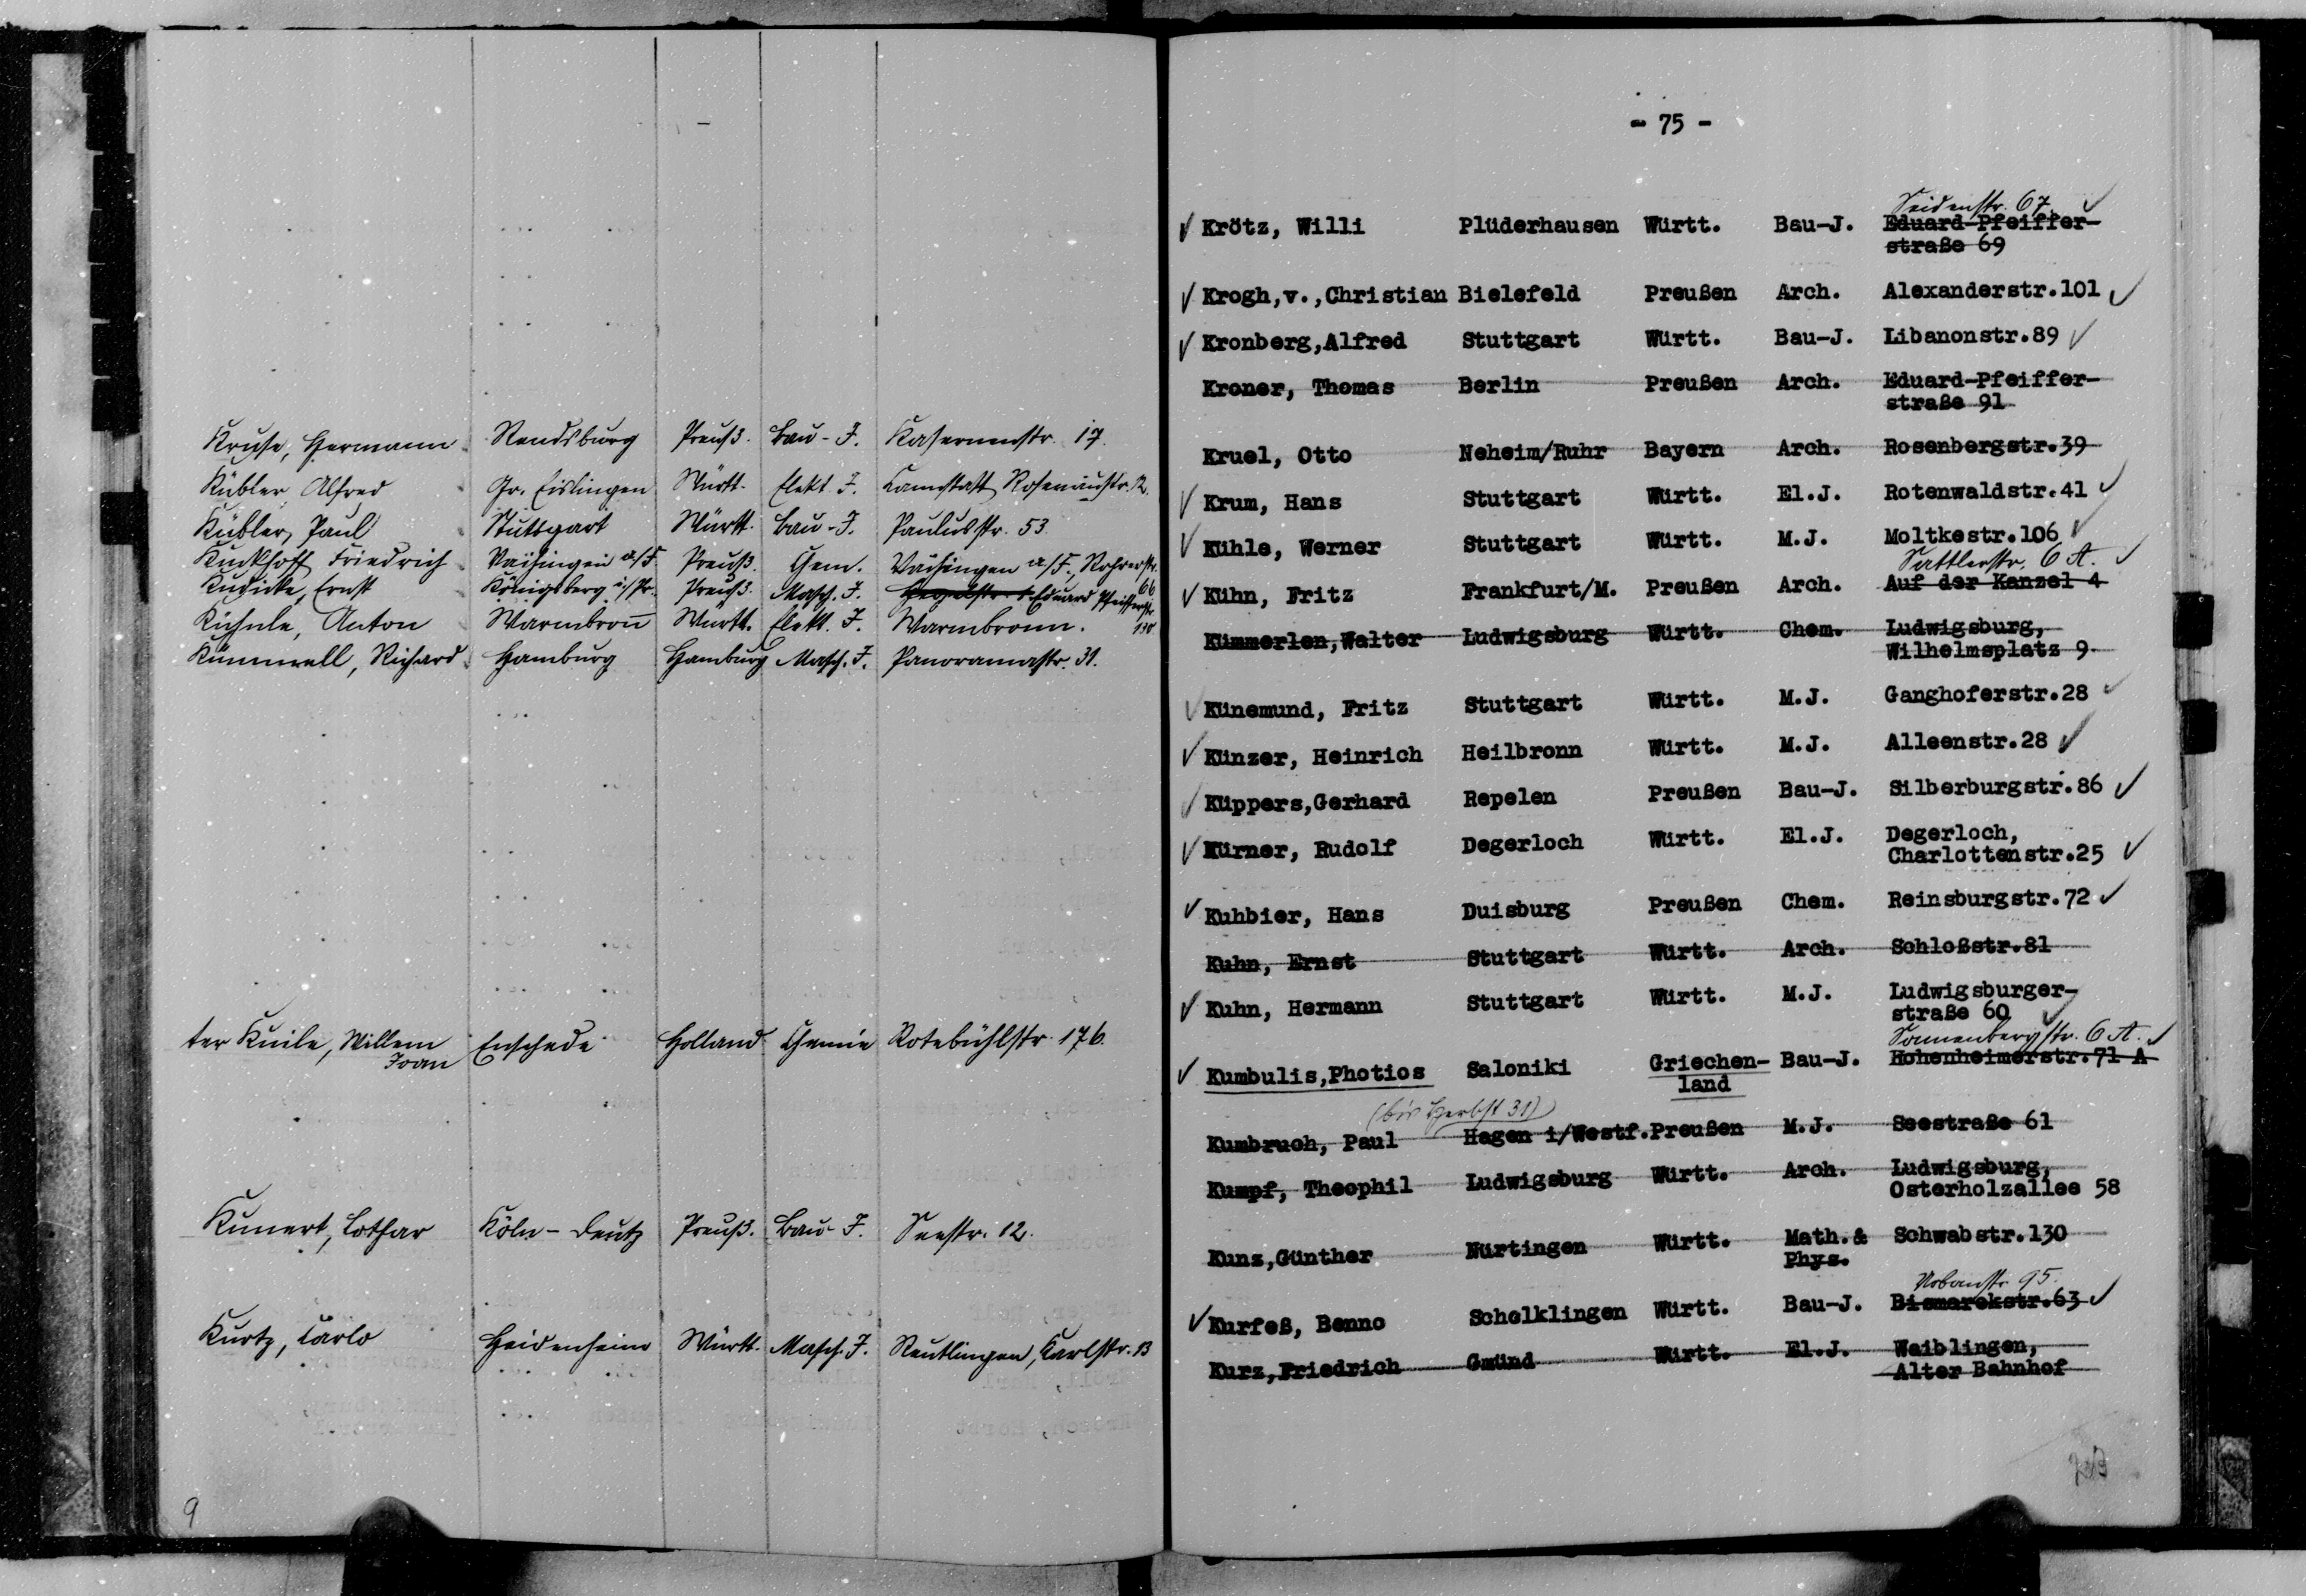 Kruse, Hermann Rendsburg Preuß. Bau-I. Kasernenstr. 17.
Kübler, Alfred Gr. Eislingen Württ. Elekt. I. Cannstatt, 12.
Kübler, Paul Stuttgart Württ. Bau-I. Paulusstr. 53
Kuckhoff Friedrich Vaihingen a/F. Preuß. Chem. Vaihingen a/F., Rohrerstr. 66
Kudicke, Ernst Königsberg i/Pr. Preuß. Masch. I. Eduard Pfeifferstr. 130
Kuhnle, Anton Warmbronn Württ. Elekt. I. Warmbronn.
Kümmell, Richard Hamburg Hamburg Masch. I. Panoramastr. 31.
ter Kuile, Willem Enschede Holland Chemie Rotebühlstr. 176.
Joan
Kunert, Lothar Köln-Deutz Preuß. Bau-I. Seestr. 12.
Kurtz, Carlo Heidenheim Württ. Masch. I. Reutlingen, Karlstr. 13
9
- 75 -
Seidenstr. 67
Krötz, Willi Plüderhausen Württ. Bau-J. Eduard-Pfeiffer-
straße 69
Krogh,v.,Christian Bielefeld Preußen Arch. Alexanderstr.101
Kronberg,Alfred Stuttgart Württ. Bau-J. Libanonstr.89
Kroner, Thomas Berlin Preußen Arch. Eduard-Pfeiffer-
straße 91
Kruel, Otto Neheim/Ruhr Bayern Arch. Rosenbergstr.39
Krum, Hans Stuttgart Württ. El.J. Rotenwaldstr.41
Kühle, Werner Stuttgart Württ. M.J. Moltkestr.106
Sattlerstr. 6 A.
Kühn, Fritz Frankfurt/M. Preußen Arch. Auf der Kanzel 4
Kümmerlen,Walter Ludwigsburg Württ. Chem. Ludwigsburg,
Wilhelmsplatz 9
Künemund, Fritz Stuttgart Württ. M.J. Ganghoferstr.28
Künzer, Heinrich Heilbronn Württ. M.J. Alleenstr.28
Küppers,Gerhard Repelen Preußen Bau-J. Silberburgstr.86
Kürner, Rudolf Degerloch Württ. El.J. Degerloch,
Charlottenstr.25
Kuhbier, Hans Duisburg Preußen Chem. Reinsburgstr.72
Kuhn, Ernst Stuttgart Württ. Arch. Schloßstr.81
Kuhn, Hermann Stuttgart Württ. M.J. Ludwigsburger-
straße 60
Sonnenbergstr. 6 A.
Kumbulis,Photios Saloniki Griechen- Bau-J. Hohenheimerstr.71 A
land
(bis Herbst 31)
Kumbruch, Paul Hagen i/Westf. Preußen M.J. Seestraße 61
Kumpf, Theophil Ludwigsburg Württ. Arch. Ludwigsburg,
Osterholzallee 58
Kunz,Günther Nürtingen Württ. Math.& Schwabstr.130
Phys.
Urbanstr. 95.
Kurfeß, Benno Schelklingen Württ. Bau-J. Bismarckstr.63
Kurz,Friedrich Gmünd Württ. El.J. Waiblingen,
Alter Bahnhof